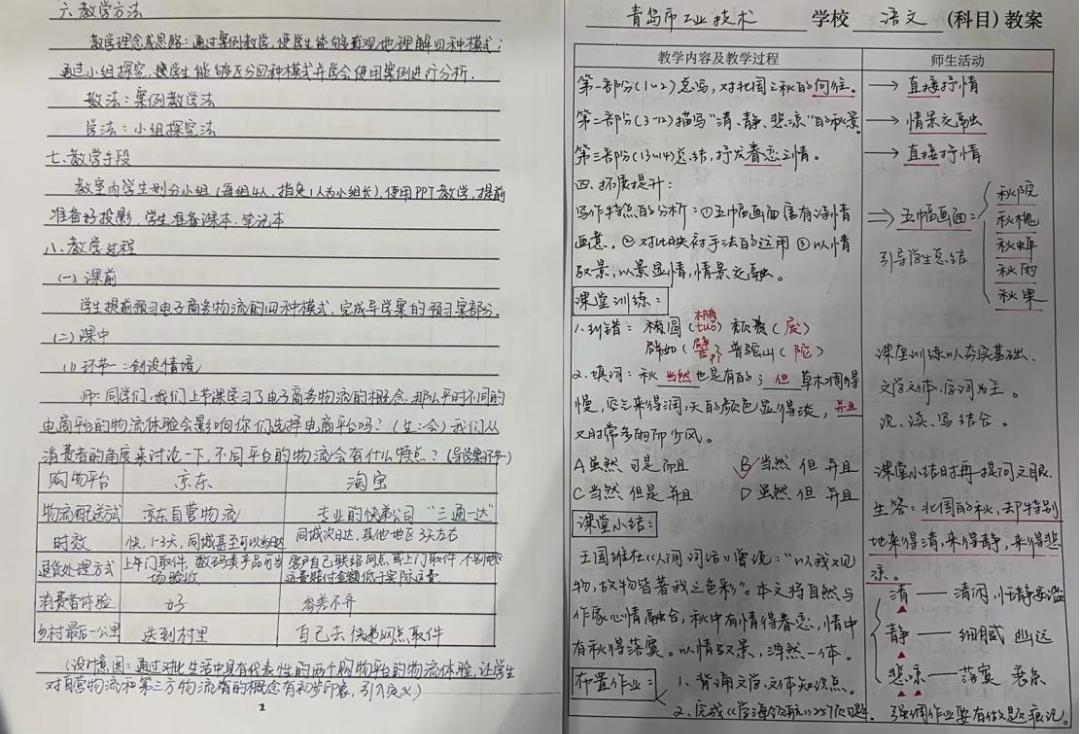 六.教学方法
教学理念或思路:通过案例教学,使学生能够直观地理解四种模式;
通过小组探究,使学生能够区分四种模式并学会使用案例进行分析.
教法:案例教学法
学法:小组探究法
七.教学手段
教室内学生划分小组(每组4人,指定1人为小组长),使用PPT教学,提前
准备好投影,学生准备课本.笔记本
八.教学过程
(一)课前
学生提前预习电子商务物流的四种模式,完成导学案的预习案部分.
(二)课中
(1)环节一:创设情境
师:同学们,我们上节课学习了电子商务物流的概念.那么平时不同的
电商平台的物流体验会影响你们选择电商平台吗?(生:会)我们从
消费者的角度来讨论一下,不同平台的物流会有什么特点?(导学案环节一)
购物平台 京东 淘宝
物流配送方式 京东自营物流 专业的快递公司“三通一达”
时效 快,1-3天,同城甚至可以当日达 同城次日达,其他地区3天左右
退货处理方式 上门取件,数码类产品可当场验收 客户自己联络网点或上门取件,运费赔付金额低于实际运费
消费者体验 好 参差不齐
乡村最后一公里 送到村里 自己去快递网点取件
(设计意图:通过对比生活中具有代表性的两个购物平台的物流体验,让学生
对自营物流和第三方物流有的概念有初步印象,引入定义)
2
青岛市工业技术 学校 语文 (科目)教案
教学内容及教学过程 师生活动
第一部分(1~2)总写,对北国之秋的向往。 → 直接抒情
第二部分(3-12)描写“清、静、悲凉”的秋景 → 情景交融
第三部分(13~14)总结,抒发眷恋之情。 → 直接抒情
四.拓展提升:
写作特点的分析:①五幅画面富有诗情
画意.②对比映衬手法的运用③以情
驭景,以景显情,情景交融。
⇒ 五幅画面:
秋院
秋槐
秋蝉
秋雨
秋果
引导学生总结
课堂训练:
1.纠错:椭圆(椭tuǒ)颓费(废)
辟如(譬pì)普驼山(陀)
2.填词:秋当然也是有的;但草木凋得
慢,空气来得润,天的颜色显得淡,并且
又时常多雨而少风。
A虽然 可是 而且 B当然 但 并且
C当然 但是 并且 D虽然 但 并且
课堂训练以夯实基础.
文学文体.字词为主。
说、读、写结合。
课堂小结:
王国维在《人间词话》曾说:“以我观
物,故物皆著我之色彩”。本文将自然与
作家心情融合,秋中有情得眷恋,情中
有秋得落寞。以情驭景,浑然一体。
课堂小结时再提问文眼.
生答:北国的秋,却特别
地来得清,来得静,来得悲
凉。
清 —— 清闲,恬静安谧
静 —— 细腻 幽远
悲凉 —— 落寞 萧条
布置作业: 1.背诵文学.文体知识点.
2.完成《学海领航》习题. 强调作业要有做题痕迹。